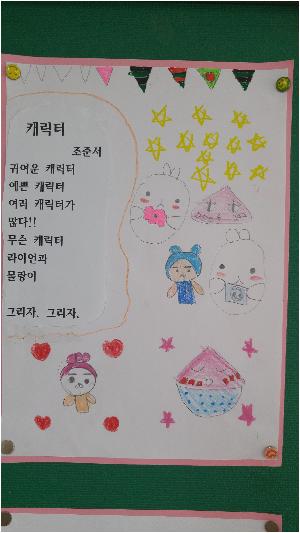 캐릭터
조준서
귀여운 캐릭터
예쁜 캐릭터
여러 캐릭터가
많다!!
무슨 캐릭터
라이언과
몰랑이
그리자. 그리자.